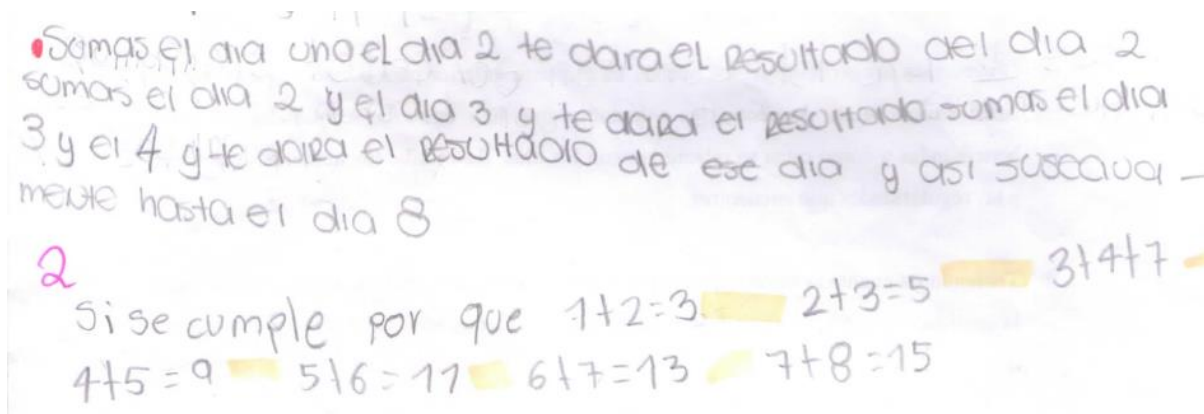 Somas el dia uno el dia 2 te dara el Resultado del dia 2
sumas el dia 2 y el dia 3 y te dara el Resultado sumas el dia
3 y el 4 y te daira el Resultado de ese dia y asi suseaua -
mente hasta el dia 8
2
Si se cumple por que 1+2=3 2+3=5 3+4+7
4+5=9 5+6=11 6+7=13 7+8=15